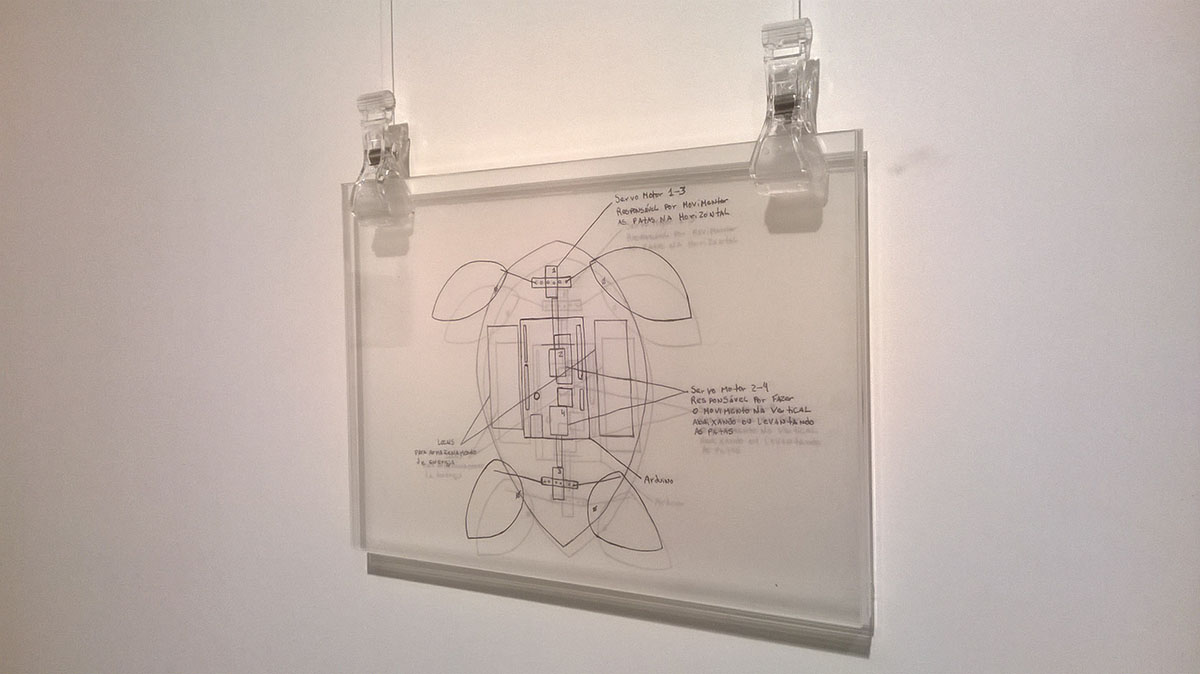 Servo Motor 1-3
Responsável por movimentar
as patas na horizontal
1
2
4
3
Servo Motor 2-4
Responsável por fazer
o movimento na vertical
abaixando ou levantando
as patas
para armazenamento
de energia
Arduino